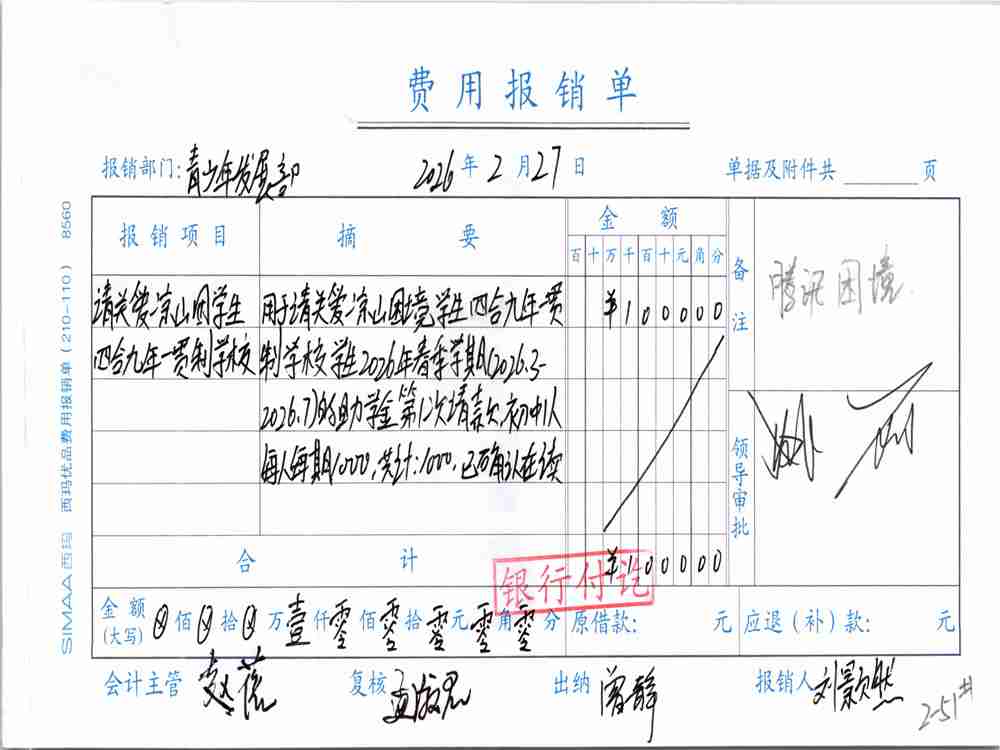 费用报销单
报销部门:青少年发展部 2026年2月27日 单据及附件共 页
报销项目 摘要 金额 备注
百十万千百十元角分
腾讯困境
请关爱凉山困学生 用于请关爱凉山困境学生四合九年一贯 ¥100000
四合九年一贯制学校 制学校学生2026年春季学期(2026.3-
2026.7)的助学金第12次请款,初中1人
每人每期1000,共计:1000,已确认在读
领导审批
合计 ¥100000
银行付讫
金额(大写) 佰 拾 万壹仟零佰零拾零元零角零分 原借款: 元 应退(补)款: 元
会计主管 复核 出纳 曾静 报销人 刘景然
2-51#
SIMAA 西玛 西玛优品费用报销单(210-110) 8560